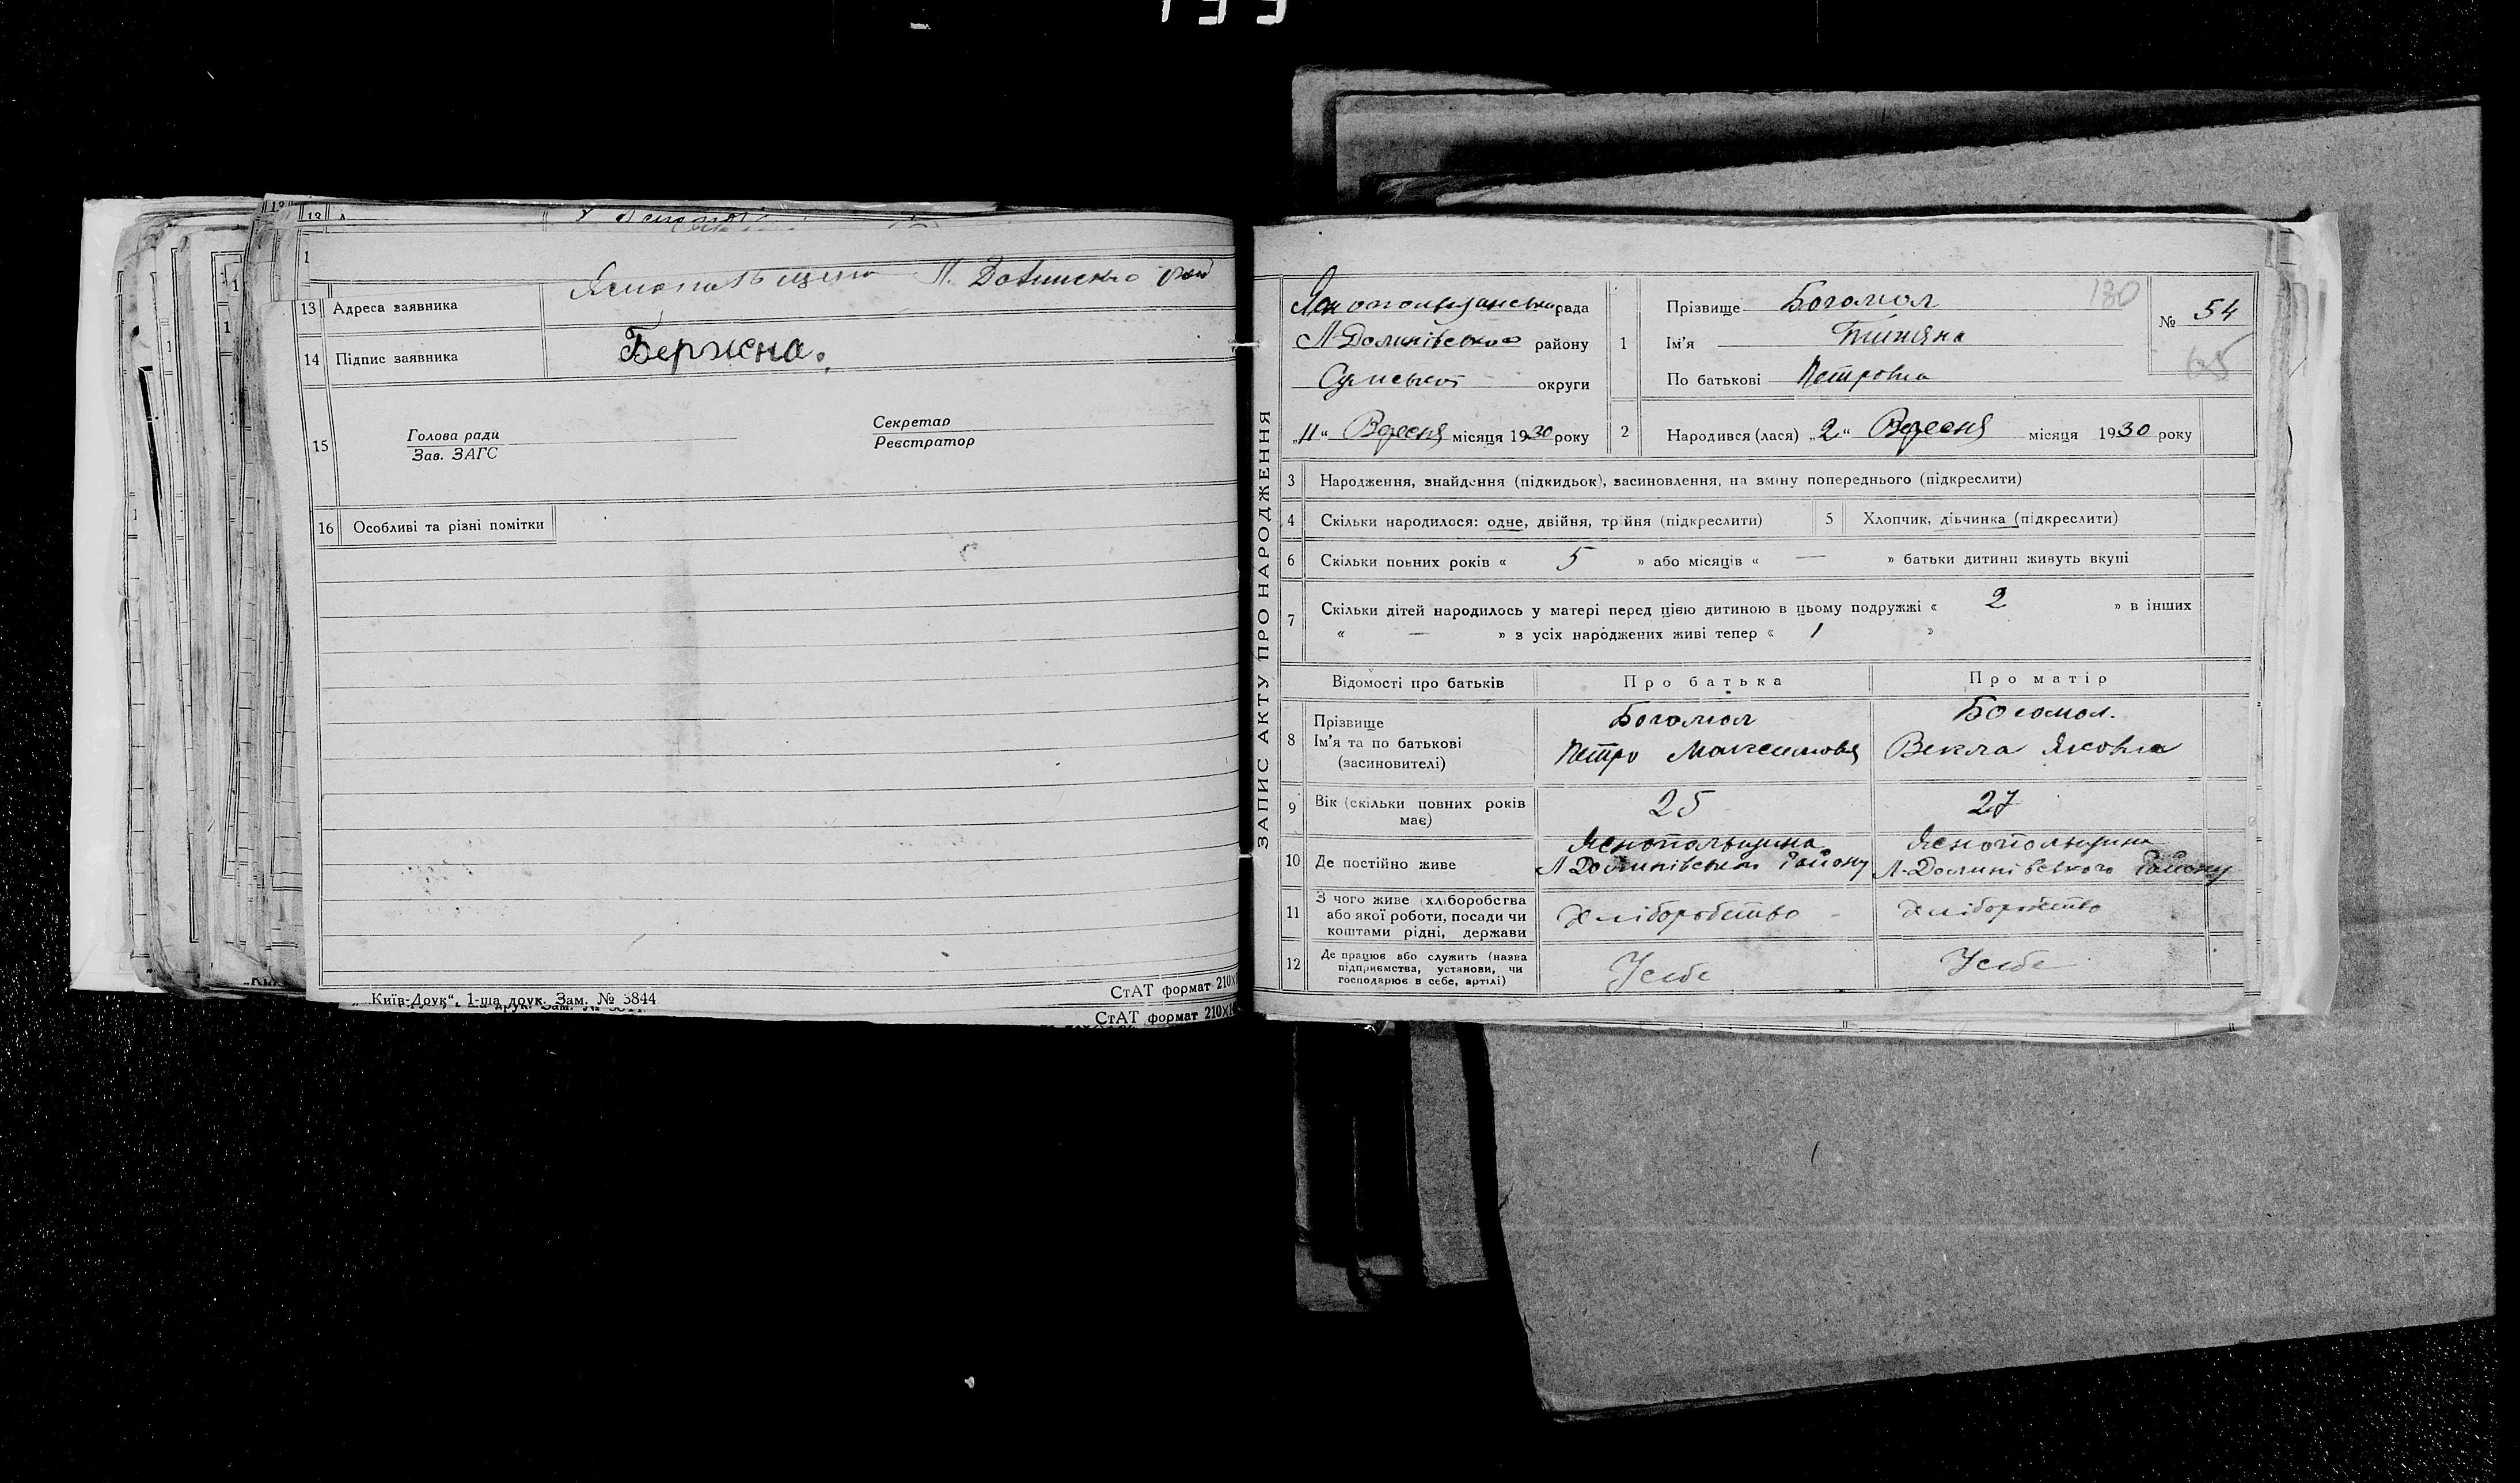 13 Адреса заявника Яснопільщина Л. Долинсько рай
14 Підпис заявника Бержена.
15 Голова ради
Зав. ЗАГС
Секретар
Реєстратор
16 Особливі та різні помітки
„Київ-Друк“, 1-ша друк. Зам. № 3844
СтАТ формат 210×
СтАТ формат 210×
ЗАПИС АКТУ ПРО НАРОДЖЕННЯ
Яснопольщанська рада
Л-Долинівського району
Сумської округи
„11“ Вересня місяця 1930 року
1 Прізвище Богомол 130
Ім'я Титяна
По батькові Петровна
№ 54
65
2 Народився (лася) „2“ Вересня місяця 1930 року
3 Народження, знайдення (підкидьок), засиновлення, на зміну попереднього (підкреслити)
4 Скільки народилося: одне, двійня, трійня (підкреслити) 5 Хлопчик, дівчинка (підкреслити)
6 Скільки повних років « 5 » або місяців « — » батьки дитини живуть вкупі
7 Скільки дітей народилось у матері перед цією дитиною в цьому подружжі « 2 » в інших
« — » з усіх народжених живі тепер « 1 »
Відомості про батьків Про батька Про матір
8 Прізвище Богомол Богомол.
Ім'я та по батькові Петро Максимовя Векла Яковна
(засиновителі)
9 Вік (скільки повних років має) 25 27
10 Де постійно живе Яснопольщина Яснопольщина
Л-Долинівськом Району Л-Долинівського Району
11 З чого живе (хліборобства
або якої роботи, посади чи Хліборобство Хліборобство
коштами рідні, держави
12 Де працює або служить (назва
підприємства, установи, чи Усебе Усебе
господарює в себе, артілі)